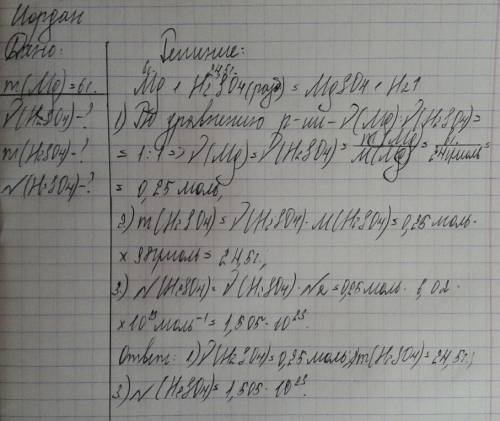 Иордан
Дано:
m(Mg)=6г.
ν(H₂SO₄)-?
m(H₂SO₄)-?
N(H₂SO₄)-?
Решение:
6г. 24,5г.
Mg + H₂SO₄(разб) = MgSO₄ + H₂↑
1) По уравнению р-ии ν(Mg):ν(H₂SO₄)=
= 1:1 => ν(Mg)=ν(H₂SO₄)= m(Mg)/M(Mg) = 6г./24г/моль =
= 0,25 моль,
2) m(H₂SO₄)=ν(H₂SO₄)·M(H₂SO₄)=0,25 моль·
× 98г/моль = 24,5г,
3) N(H₂SO₄)=ν(H₂SO₄)·Nа=0,25 моль · 6,02·
×10²³моль⁻¹ = 1,505·10²³.
Ответ: 1) ν(H₂SO₄)=0,25 моль, 2) m(H₂SO₄)=24,5г,
3) N(H₂SO₄)=1,505·10²³.